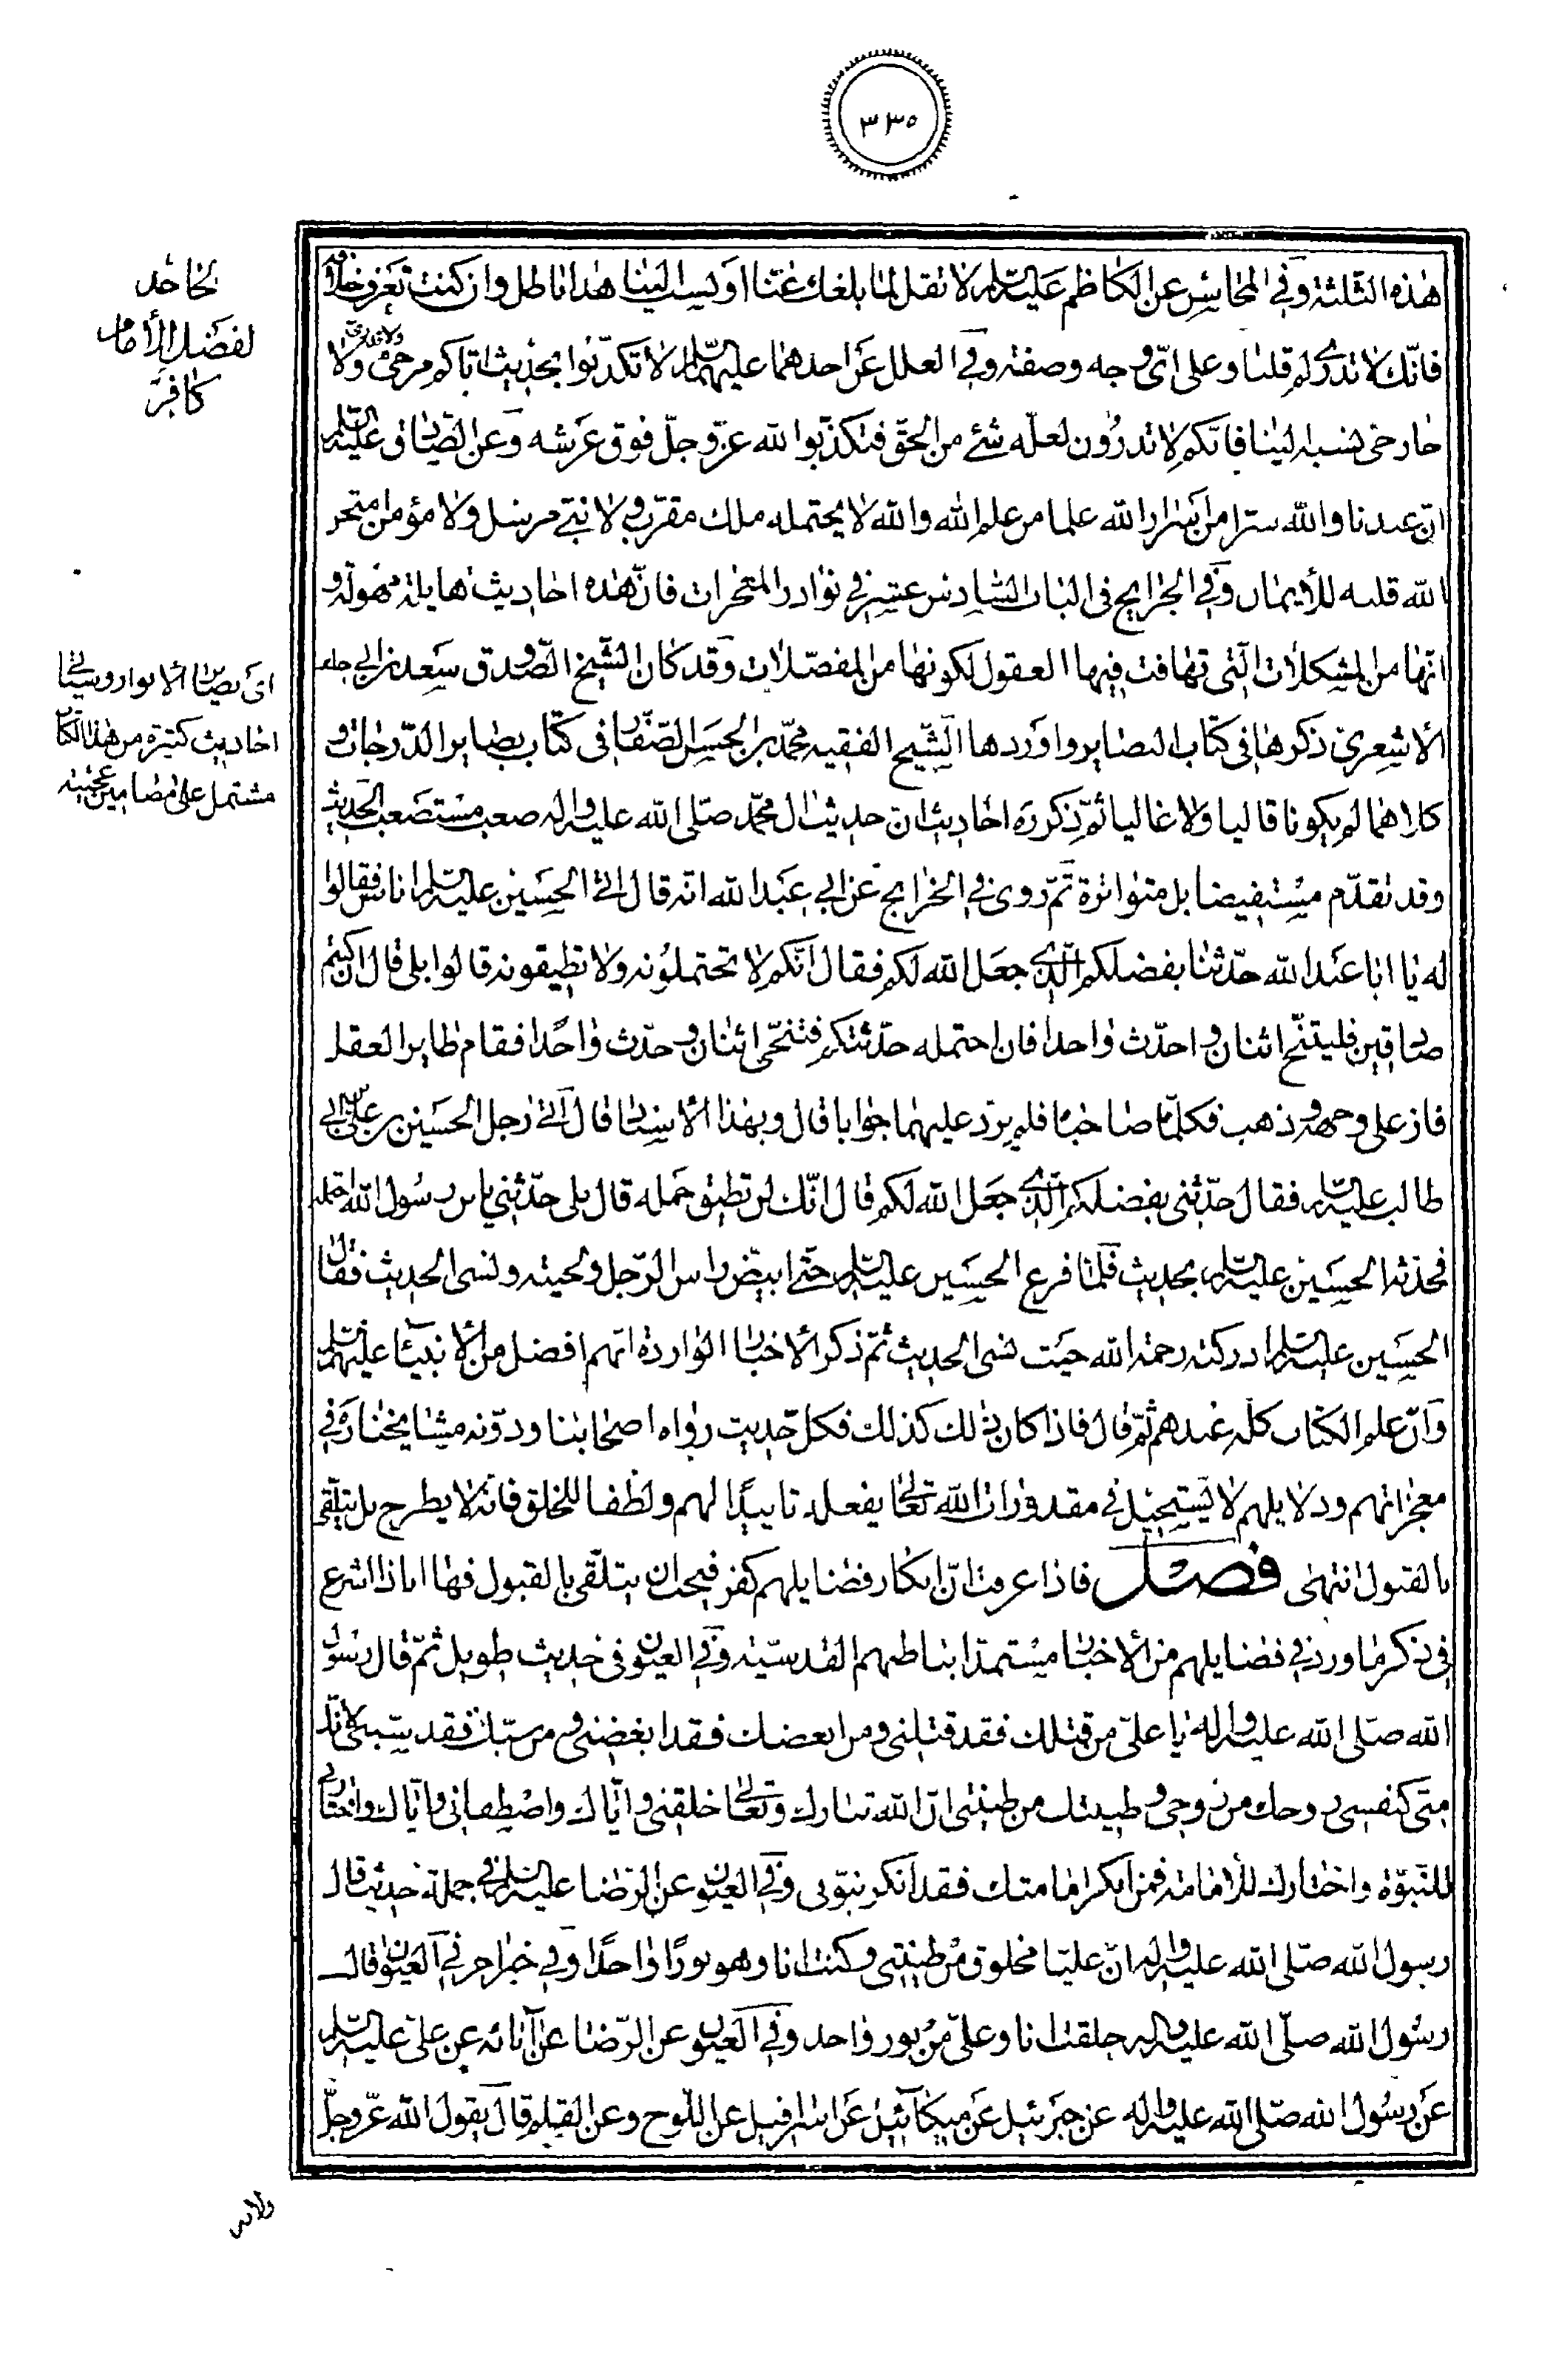 ٣٣٥
هذه الثلثة وفي المحاسن عن الكاظم عليه السلام لا تقل لما بلغك عنا او نسب الينا هذا باطل وان كنت تعرف خلافه
فانك لا تدري لم قلنا وعلى اي وجه وصفة وفي العلل عن احدهما عليهما السلام لا تكذبوا بحديث اتاكم مرجئ ولا قدري ولا
خارجي نسبه الينا فانكم لا تدرون لعله شئ من الحق فتكذبوا الله عز وجل فوق عرشه وعن الصادق عليه السلام
ان عندنا والله سرا من اسرار الله علما من علم الله والله لا يحتمله ملك مقرب ولا نبي مرسل ولا مؤمن امتحن
الله قلبه للايمان وفي الخرايج في الباب السادس عشر في نوادر المعجزات فان هذه احاديث هايلة مهولة و
انها من المشكلات التي تهافت فيها العقول لكونها من المفصلات وقد كان الشيخ الصدوق سعد بن ابي خلف
الاشعري ذكرها في كتاب البصاير واوردها الشيخ الفقيه محمد بن الحسن الصفار في كتاب بصاير الدرجات و
كلاهما لم يكونا قاليا ولا غاليا ثم ذكر ره احاديث ان حديث ال محمد صلى الله عليه واله صعب مستصعب الحديث
وقد تقدم مستفيضا بل متواترة ثم روى في الخرايج عن ابي عبد الله انه قال اتى الحسين عليه السلام اناس فقالوا
له يا ابا عبد الله حدثنا بفضلكم الذي جعل الله لكم فقال انكم لا تحتملونه ولا تطيقونه قالوا بلى قال ان كنتم
صادقين فليتنح اثنان واحدث واحدا فان احتمله حدثتكم فتنحى اثنان وحدث واحدا فقام طاير العقل
فاز على وجهه وذهب فكلمه صاحباه فلم يرد عليهما جوابا قال وبهذا الاسناد قال اتى رجل الحسين بن علي بن ابي
طالب عليه السلام فقال حدثني بفضلكم الذي جعل الله لكم قال انك لن تطيق حمله قال بلى حدثني يابن رسول الله احتمله
فحدثه الحسين عليه السلام بحديث فلما فرغ الحسين عليه السلام حتى ابيض راس الرجل ولحيته ونسى الحديث فقال
الحسين عليه السلام ادركته رحمة الله حيث نسى الحديث ثم ذكر الاخبار الواردة انهم افضل من الانبياء عليهم السلام
وان علم الكتاب كله عندهم ثم قال فاذا كان ذلك كذلك فكل حديث رواه اصحابنا ودونه مشايخنا ره في
معجزاتهم ودلايلهم لا يستحيل في مقدورات الله تعالى يفعله تاييدا لهم ولطفا للخلق فانه لا يطرح بل يتلقى
بالقبول انتهى فصل فاذا عرفت ان انكار فضايلهم كفر فيجب ان يتلقى بالقبول فها انا ذا اشرع
في ذكر ما ورد في فضايلهم من الاخبار مستمدا بناطهم القدسية وفي العيون في حديث طويل ثم قال رسول
الله صلى الله عليه واله يا علي من قتلك فقد قتلني ومن ابغضك فقد ابغضني ومن سبك فقد سبني لانك
مني كنفسي روحك من روحي وطينتك من طينتي ان الله تبارك وتعالى خلقني واياك واصطفاني واياك واختارني
للنبوة واختارك للامامة فمن انكر امامتك فقد انكر نبوتي وفي العيون عن الرضا عليه السلام في جملة حديث قال
رسول الله صلى الله عليه واله ان عليا مخلوق من طينتي وكنت انا وهو نورا واحدا وفي خبر اخر في العيون قال
رسول الله صلى الله عليه واله خلقت انا وعلي من نور واحد وفي العيون عن الرضا عن آبائه عن علي عليه السلام
عن رسول الله صلى الله عليه واله عن جبرئيل عن ميكائيل عن اسرافيل عن اللوح وعن القلم قال يقول الله عز وجل
الجاحد
لفضل الامام
كافر
اي بصائر الانوار وسياتي
احاديث كثيرة من هذا الكتاب
مشتمل على مضامين عجيبة
ولاية